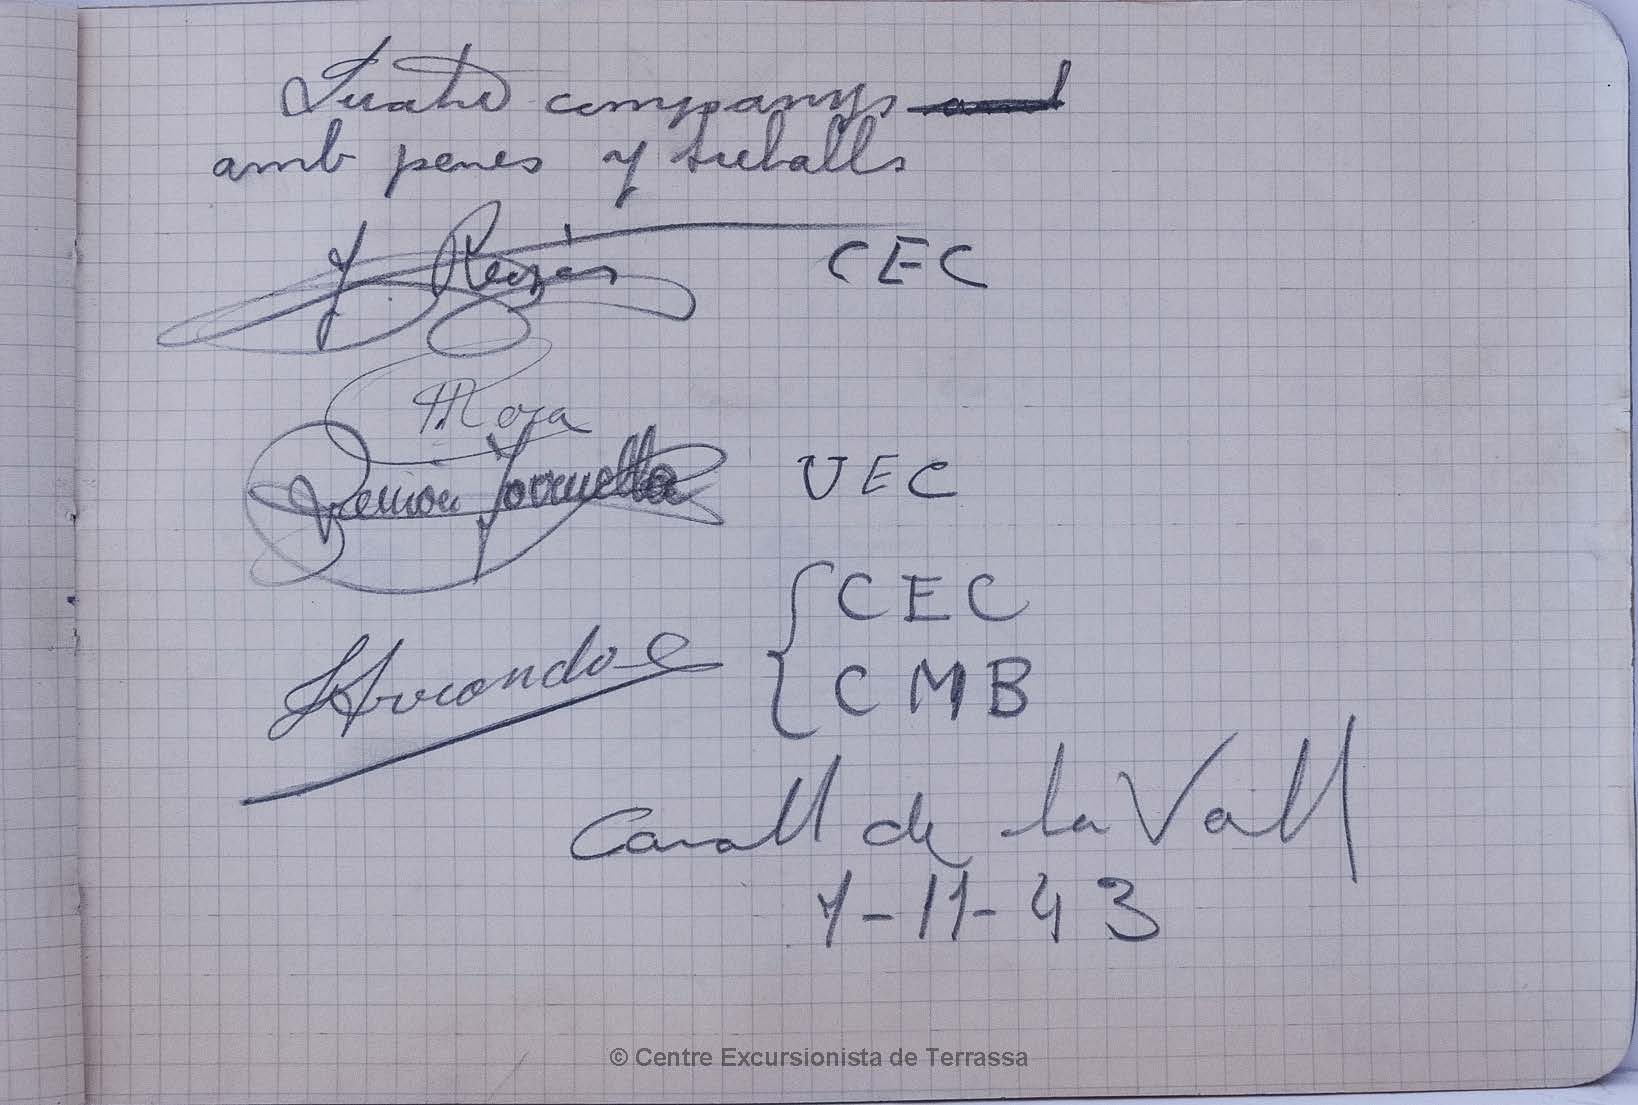 Quatre companys
amb penes y treballs
J.
CEC
Mora
Ramón Torruella
UEC
CEC
CMB
Cavall de la Vall
1-11-43
© Centre Excursionista de Terrassa